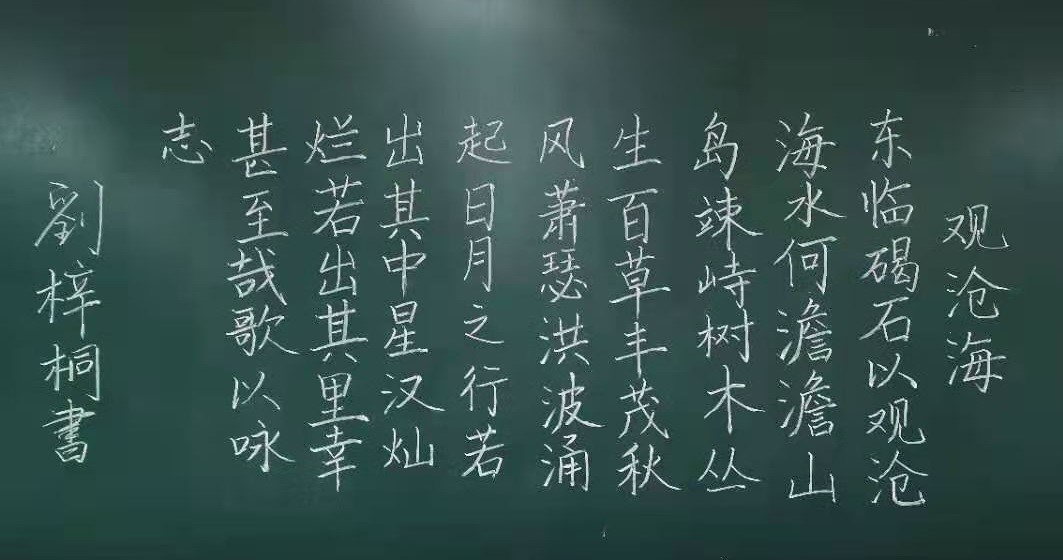 观沧海
东临碣石以观沧
海水何澹澹山
岛竦峙树木丛
生百草丰茂秋
风萧瑟洪波涌
起日月之行若
出其中星汉灿
烂若出其里幸
甚至哉歌以咏
志
劉梓桐書